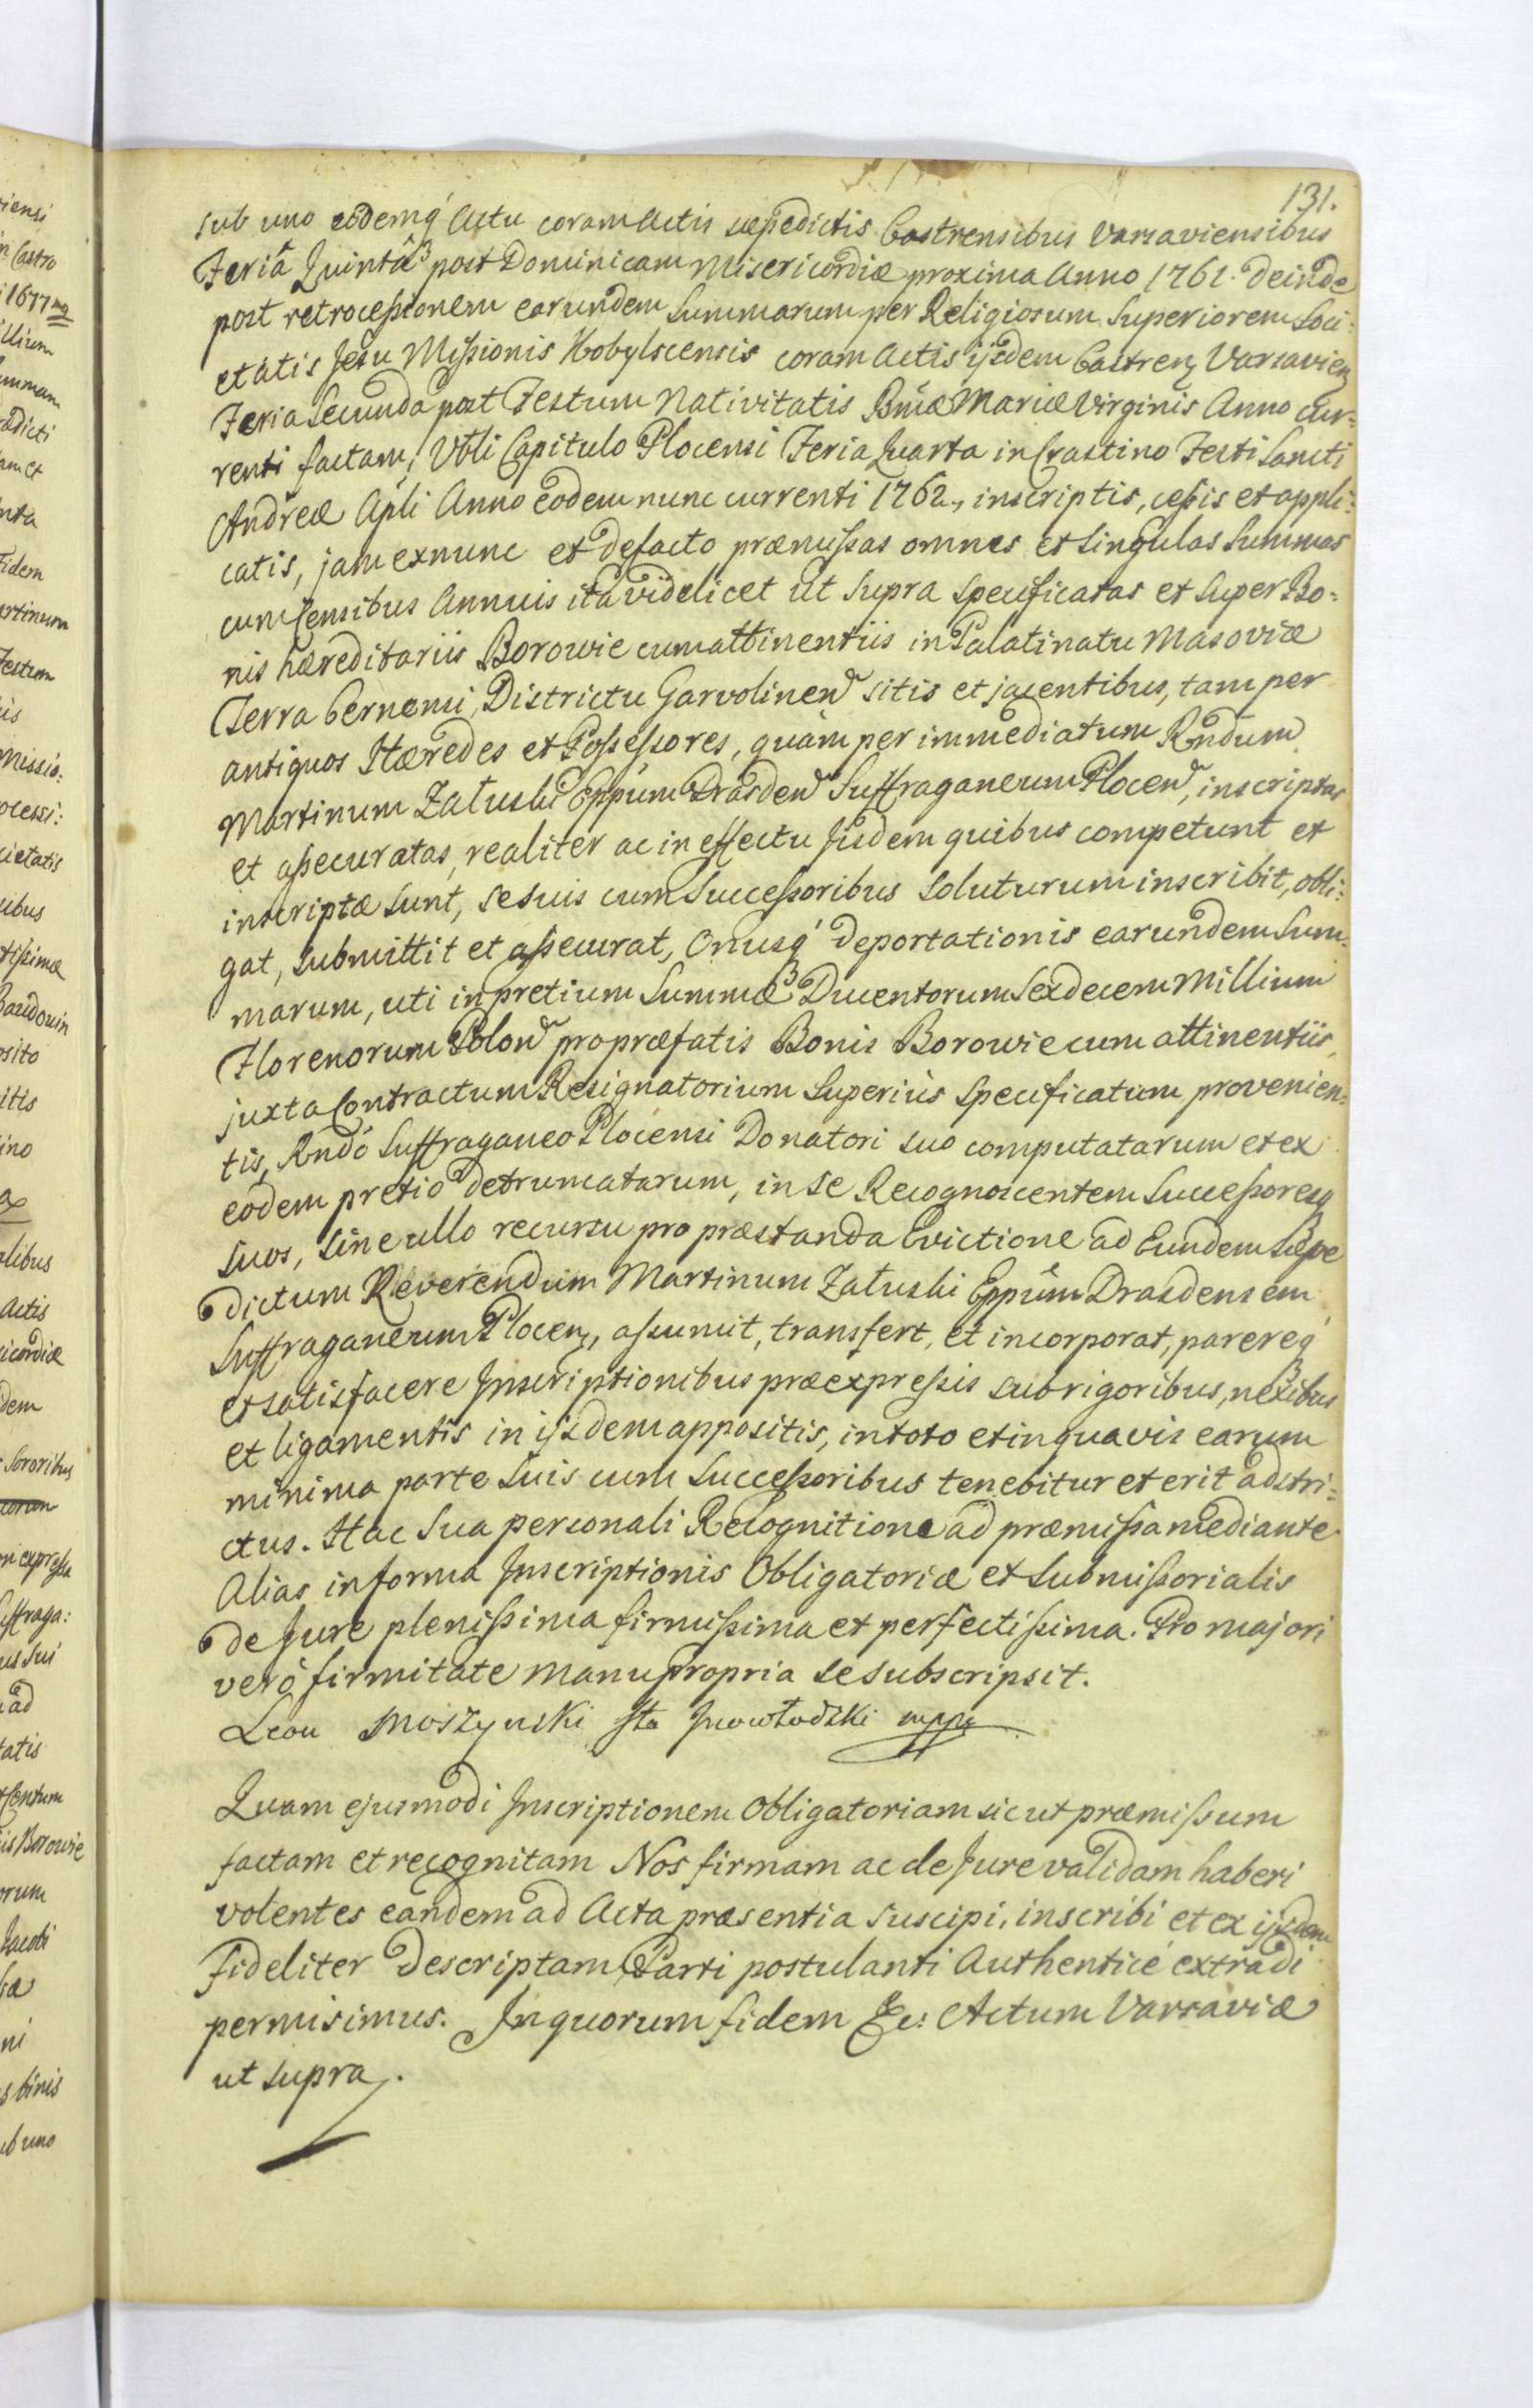 131.
sub uno eodemq́ Actu coram Actis saepedictis Castrensibus Varsaviensibus
Feriâ Quintâ post Dominicam Misericordiæ proxima Anno 1761. deinde
post retrocessionem earundem Summarum per Religiosum Superiorem Soci:
etatis Jesu Missionis Kobylscensis coram Actis ijsdem Castren̄ Varsavien̄
Feria Secunda post Festum Nativitatis Bm̃æ Mariæ Virginis Anno cur-
renti factam, Vbli Capitulo Plocensi Feria Quarta in Crastino Festi Sancti
Andreæ Apli Anno eodem nunc currenti 1762., inscriptis, cessis et appli:
catis, jam exnunc et defacto præmissas omnes et singulas Summas
cum Censibus Annuis ita videlicet ut supra specificatas et super Bo=
nis hæreditariis Borowie cum attinentiis in Palatinatu Masoviæ
Terra Cernensi, Districtu Garvolinen̄ sitis et jacentibus, tam per
antiquos Hæredes et Possessores, quàm per immediatum Rndum
Martinum Załuski Eppum Drasden̄ Suffraganeum Plocen̄, inscriptas
et assecuratas, realiter ac in effectu Jisdem quibus competunt et
inscriptæ sunt, se suis cum Successoribus soluturum inscribit, obli:
gat, submittit et assecurat, Onusq́ deportationis earundem Sum=
marum, uti in pretium Summæ Ducentorum Sexdecem Millium
Florenorum Polon̄ pro præfatis Bonis Borowie cum attinentiis,
juxta Contractum Resignatorium Superiùs Specificatum provenien=
tis, Rndo Suffraganeo Plocensi Donatori suo computatarum et ex
eodem pretio detruncatarum, in se Recognoscentem Successoresq
suos, sine ullo recursu pro præstanda Evictione ad Eundem Sæpe
dictum Reverendum Martinum Załuski Eppum Drasdensem
Suffraganeum Plocen̄, assumit, transfert, et incorporat, parereq́
et satisfacere Inscriptionibus præexpressis sub rigoribus, nexibus
et ligamentis in ijsdem appositis, in toto et in quavis earum
minima parte suis cum Successoribus tenebitur et erit adstri=
ctus. Hac Sua personali Recognitione ad præmissa mediante
Alias in forma Inscriptionis Obligatoriæ et Submissorialis
de Jure plenissima firmissima et perfectissima. Pro majori
verò firmitate manu propria se subscripsit.
Leon Moszynski Sta Inowłodzki mppa
Quam ejusmodi Inscriptionem Obligatoriam sicut præmissum
factam et recognitam Nos firmam ac de Jure validam haberi
volentes eandem ad Acta præsentia suscipi, inscribi et ex ijsdem
fideliter descriptam Parti postulanti Authenticé extradi
permisimus. In quorum fidem &c: Actum Varsaviæ
ut supra.